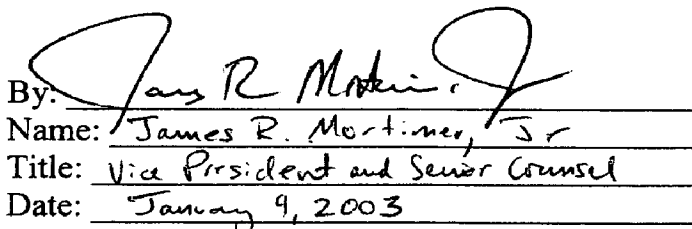 By: James R Mortimer Jr
Name: James R. Mortimer, Jr
Title: Vice President and Senior Counsel
Date: January 9, 2003